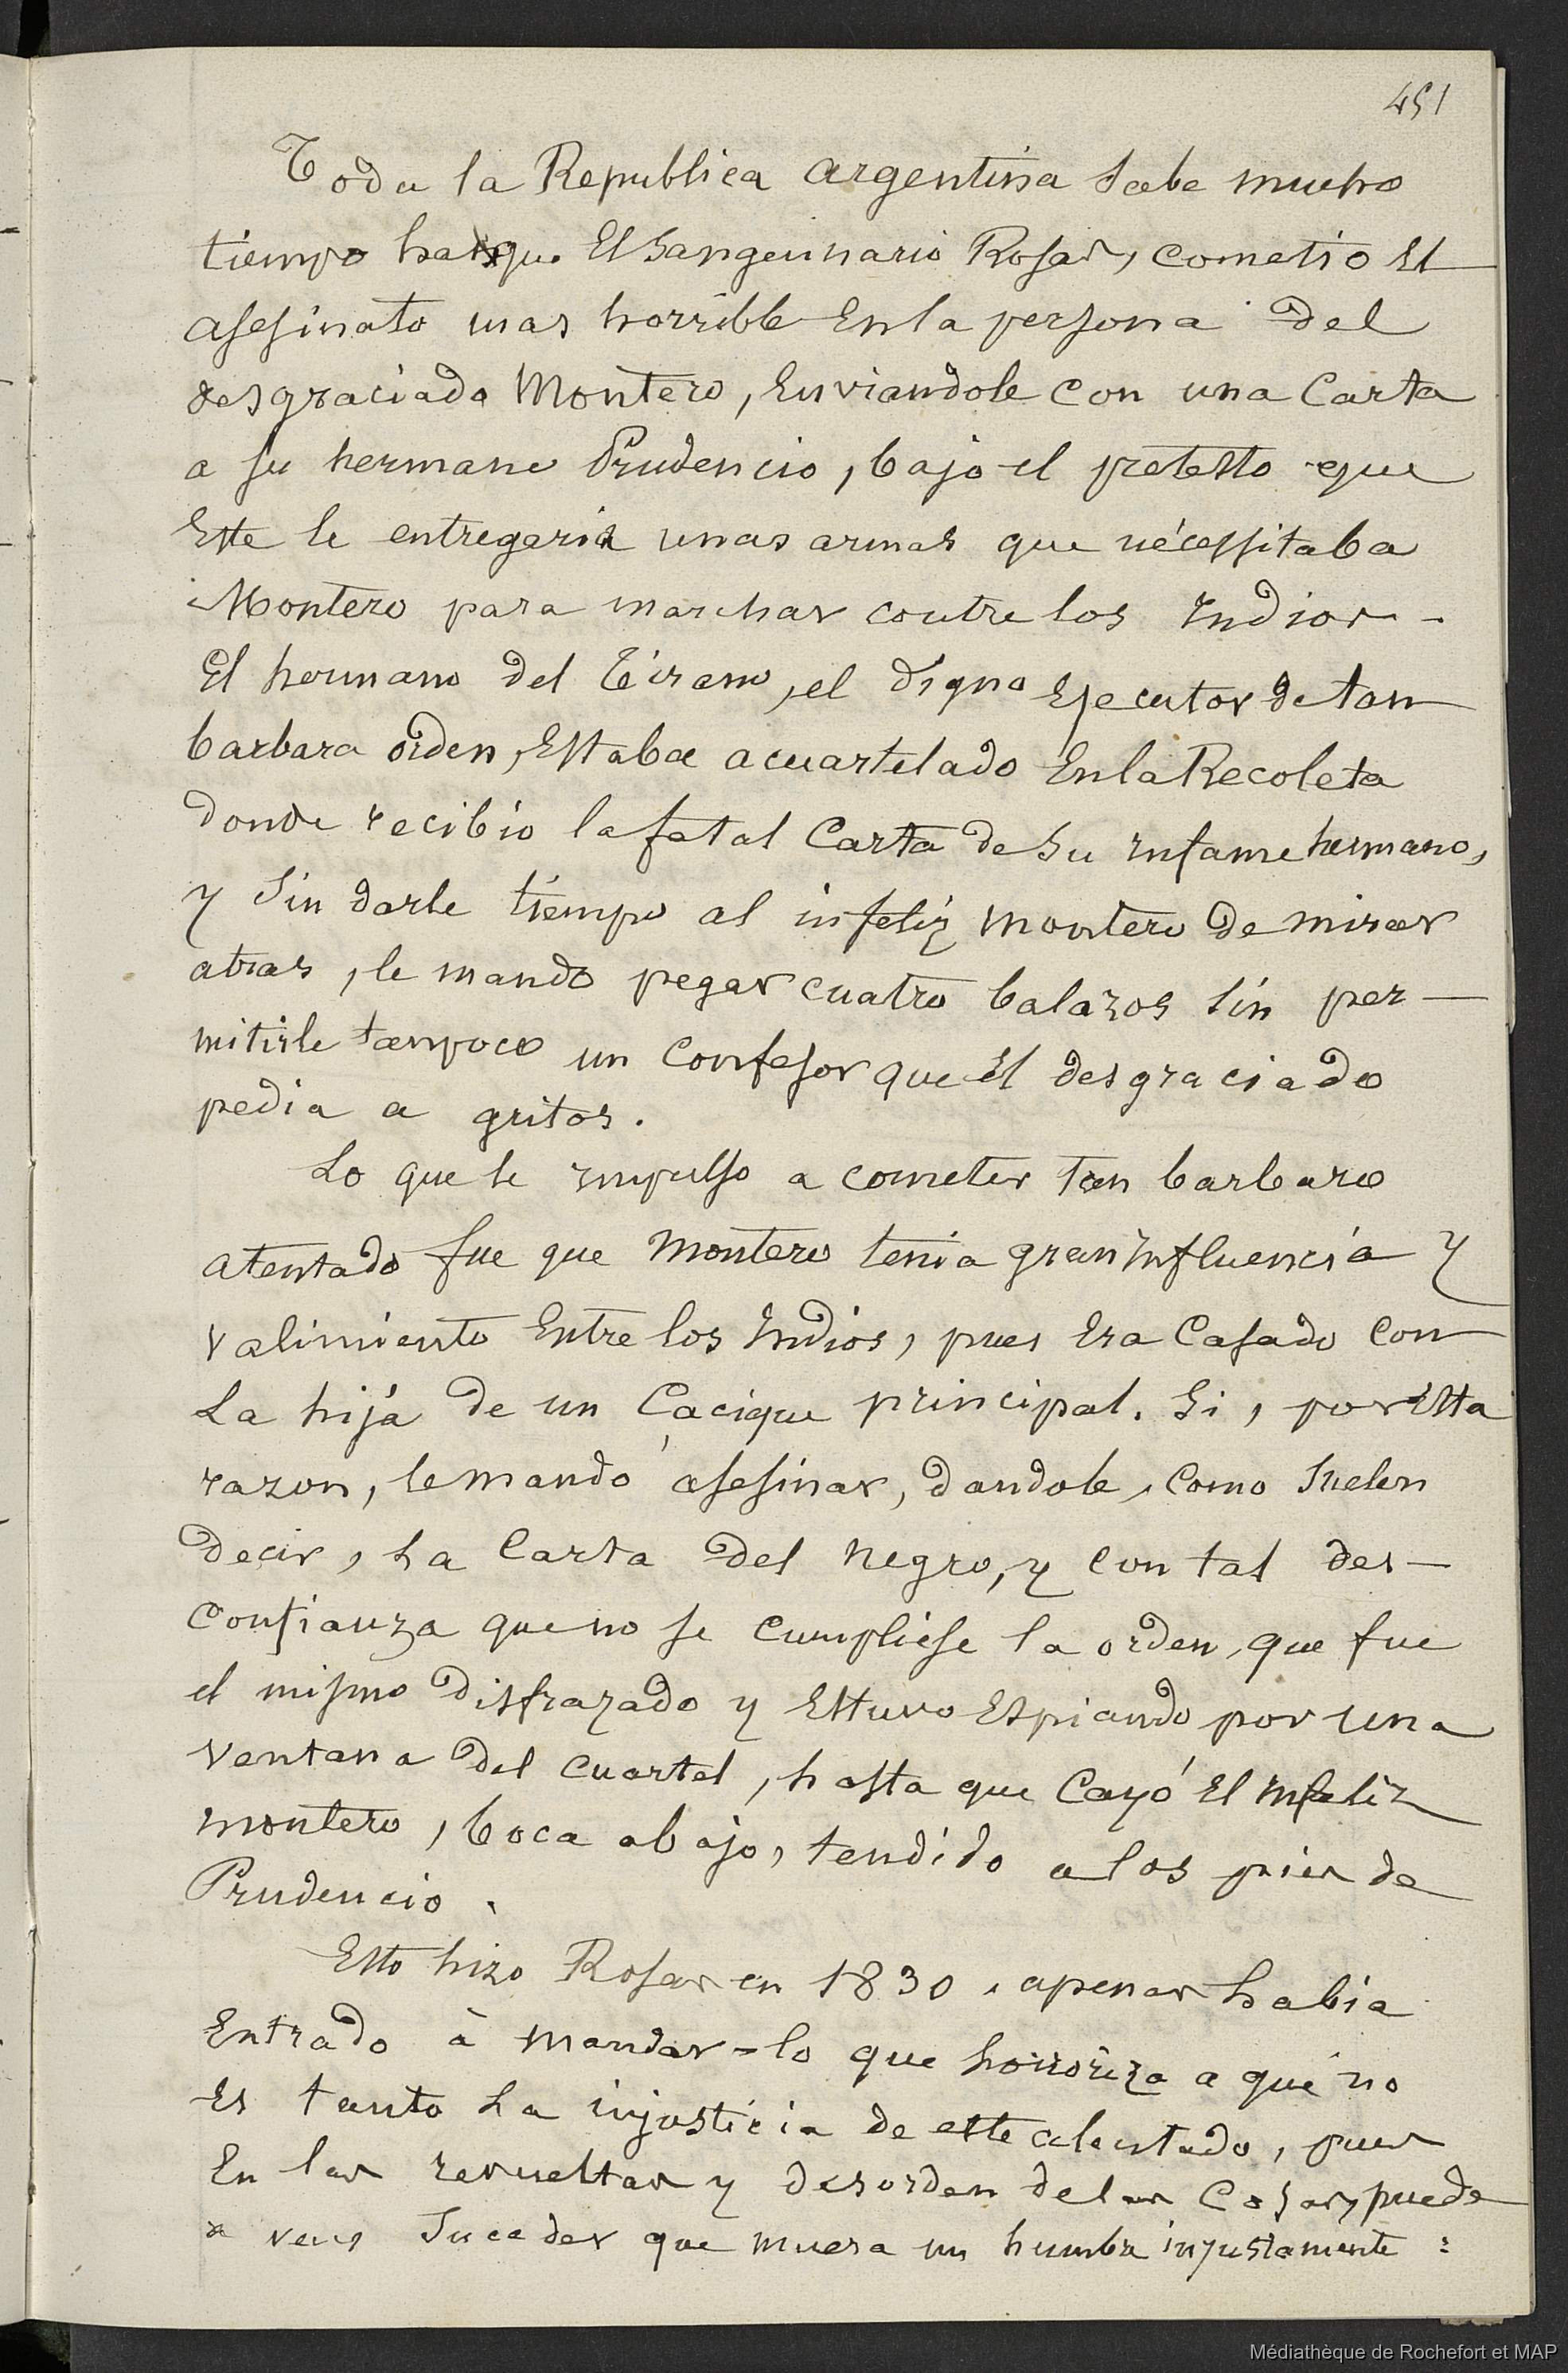 451
Toda la Republica argentina Sabe mucho
tiempo ha que El Sanguinario Rosas, cometio El
asesinato mas horrible En la persona del
desgraciado Montero, Enviandole con una Carta
a su hermano Prudencio, bajo el pretesto que
Este le entregaria unas armas que nécessitaba
Montero para marchar contre los Indios -
El hermano del Tirano, el digno Ejecutor de tan
barbara orden, Estaba acuartelado En la Recoleta
donde recibio la fatal Carta de Su Infame hermano,
y Sin darle tiempo al infeliz Montero de mirar
atras, le mando pegar cuatro balazos Sin per-
mitirle tampoco un Confesor que El desgraciado
pedia a gritos.
Lo que le Impulso a cometer tan barbaro
atentado fue que Montero tenia gran Influencia y
valimiento Entre los Indios, pues Era Casado con
La hija de un Cacique principal. Si, por Esta
razon, le mandó asesinar, dandole, Como Suelen
decir, La Carta del negro, y con tal des-
confianza que no se cumpliese la orden, que fue
el mismo disfrazado y Estuvo Espiando por una
ventana del Cuartel, hasta que Cayó El Infeliz
Montero, boca abajo, tendido a los pies de
Prudencio.
Esto hizo Rosas en 1830, apenas habia
Entrado à Mandar = lo que horroriza a qui no
Es tanto La injusticia de este atentado, pues
En las revueltas y desorden de las Cosas, puede
a veces Suceder que muera un humbre injustamente :
Médiathèque de Rochefort et MAP